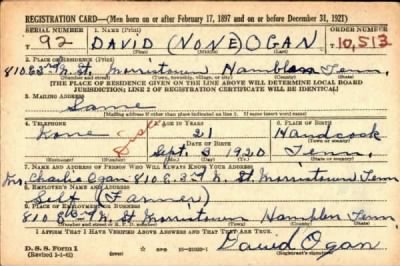 REGISTRATION CARD—(Men born on or after February 17, 1897 and on or before December 31, 1921)
SERIAL NUMBER 1. NAME (Print) ORDER NUMBER
T 92 DAVID (NONE) OGAN T10,513
(First) (Middle) (Last)
2. PLACE OF RESIDENCE (Print)
810 E 3rd N. St. Morristown Hamblen Tenn.
(Number and street) (Town, township, village, or city) (County) (State)
[THE PLACE OF RESIDENCE GIVEN ON THE LINE ABOVE WILL DETERMINE LOCAL BOARD
JURISDICTION; LINE 2 OF REGISTRATION CERTIFICATE WILL BE IDENTICAL]
3. MAILING ADDRESS
Same
[Mailing address if other than place indicated on line 2. If same insert word same]
4. TELEPHONE 5. AGE IN YEARS 6. PLACE OF BIRTH
None 21 Handcook
DATE OF BIRTH
Sept 3 1920 Tenn.
7. NAME AND ADDRESS OF PERSON WHO WILL ALWAYS KNOW YOUR ADDRESS
Mrs Charlie Ogan 810 E. 3rd N. St Morristown Tenn
8. EMPLOYER'S NAME AND ADDRESS
Self (Farmer)
9. PLACE OF EMPLOYMENT OR BUSINESS
810 E 3rd N St Morristown Hamblen Tenn
(Number and street or R. F. D. number) (Town) (County) (State)
I AFFIRM THAT I HAVE VERIFIED ABOVE ANSWERS AND THAT THEY ARE TRUE.
D. S. S. Form 1
(Revised 1-1-42) David Ogan
(Registrant's signature)